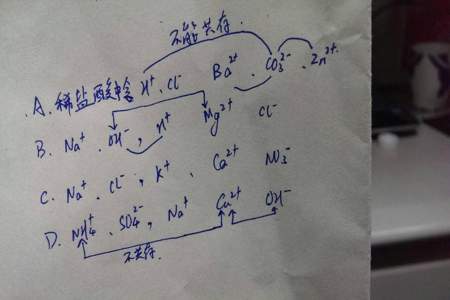 不能共存.
.A.稀盐酸中含 H⁺、Cl⁻ Ba²⁺、CO₃²⁻、Zn²⁺.
B. Na⁺、OH⁻, H⁺ Mg²⁺ Cl⁻
C. Na⁺、Cl⁻, K⁺、Ca²⁺ NO₃⁻
D. NH₄⁺、SO₄²⁻, Na⁺ Cu²⁺ OH⁻
不共存.